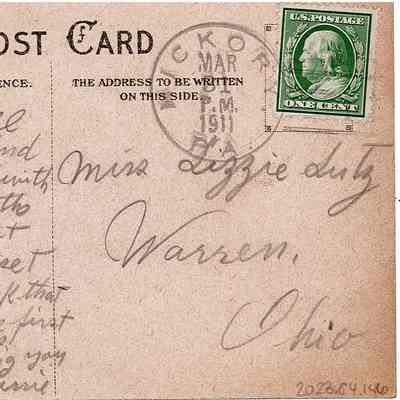 POST CARD
ENCE.
THE ADDRESS TO BE WRITTEN
ON THIS SIDE.
HICKORY
MAR
31
P.M.
1911
PA
U.S. POSTAGE
ONE CENT
Miss Lizzie Lutz
Warren,
Ohio
nd
with
t
set
k that
first
g you
2023.64.146